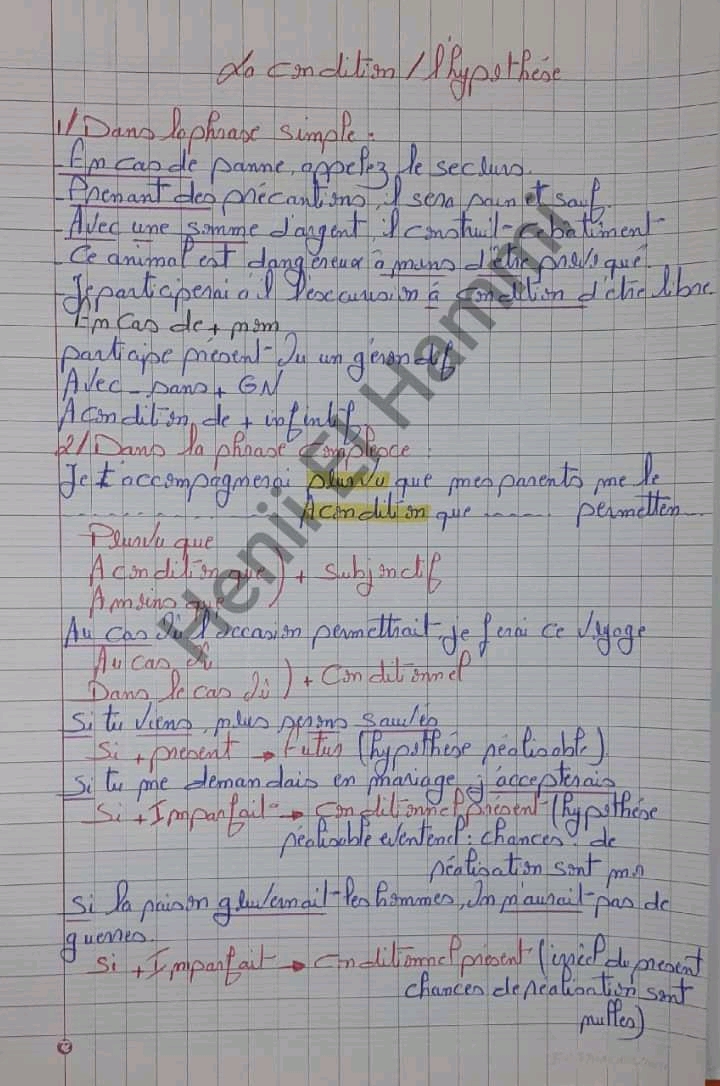 La condition / l'hypothése
1/ Dans la phrase simple :
- En cas de panne, appelez le secours.
- Prenant des précautions, il sera sain et sauf.
- Avec une somme d'argent, il construit ce batiment
- Ce animal est dangéreux à moins d'être
- Je participerai à l'excursion à condition d'être libre
En cas de + nom
participe présent ou un gérondif
Avec - sans + GN
A condition de + infinitif
2/ Dans la phrase complexe :
Je t'accompagnerai pourvu que mes parents me le
A condition que ...... permetten...
Pourvu que
A condition que ) + Subjonctif
A moins que
Au cas où l'occasion permettrait, je ferai ce voyage
Au cas où
Dans le cas où ) + Conditionnel
Si tu viens, nous serons
Si + present → Futur (hypothése réalisable)
Si tu me demandais en mariage, j'accepterais
Si + Imparfait → Conditionnel présent (hypothése
réalisable eventuel : chances de
réalisation sont
Si la raison gouvernait les hommes, on n'aurait pas de
guerres.
Si + Imparfait → Conditionnel présent (irréel du present
chances de réalisation sont
nulles)
Henii El Hammi